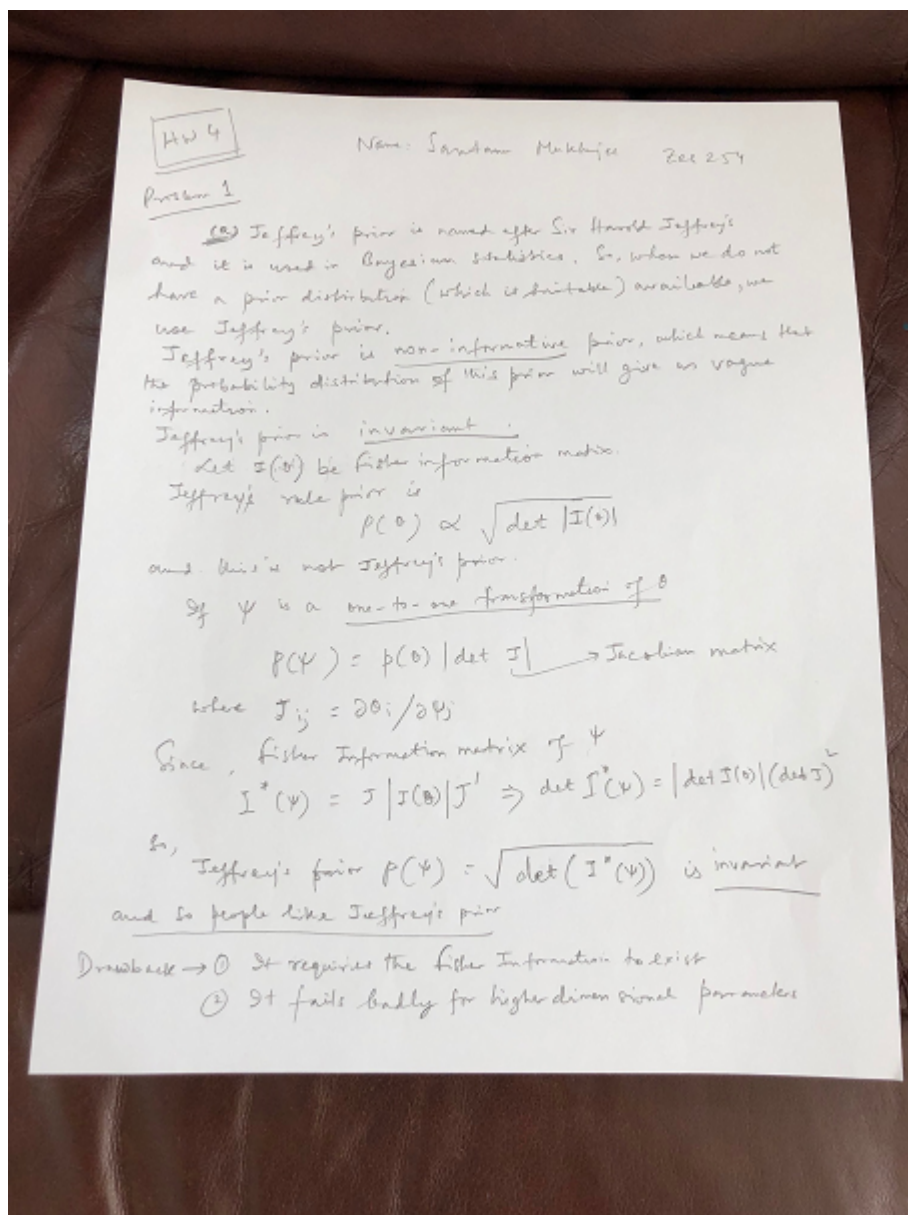 HW 4
Name: Mukherjee Zes 254
Problem 1
(a) Jeffrey's prior is named after Sir Harold Jeffrey's
and it is used in Bayesian statistics. So, when we do not
have a prior distribution (which is suitable) available, we
use Jeffrey's prior.
Jeffrey's prior is non-informative prior, which means that
the probability distribution of this prior will give us vague
information.
Jeffrey's prior is invariant.
Let I(θ) be fisher information matrix.
Jeffrey's rule prior is
P(θ) ∝ √det |I(θ)|
and this is not Jeffrey's prior.
If ψ is a one-to-one transformation of θ
P(ψ) = p(θ) |det J| → Jacobian matrix
where J_ij = ∂θi/∂ψj
Since, fisher Information matrix of ψ
I*(ψ) = J |I(θ)| J' ⇒ det I*(ψ) = |det I(θ)| (det J)²
so,
Jeffrey's prior P(ψ) = √det (I*(ψ)) is invariant
and so people like Jeffrey's prior
Drawback → ① It requires the fisher Information to exist
② It fails badly for higher dimensional parameters